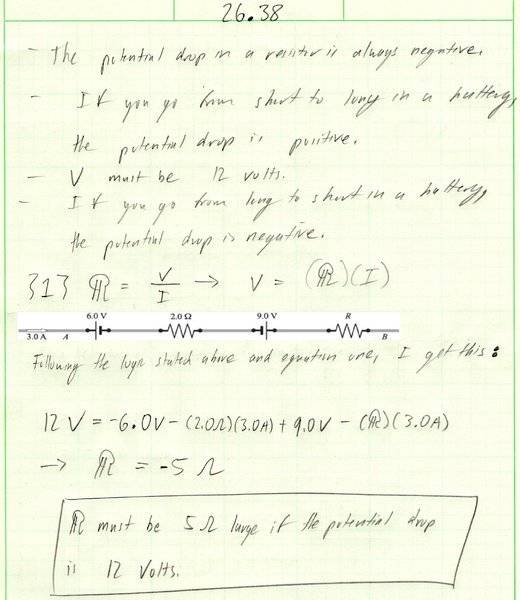 26.38
- The potential drop in a resistor is always negative.
- If you go from short to long in a battery,
the potential drop is positive.
- V must be 12 volts.
- If you go from long to short in a battery,
the potential drop is negative.
313 R = V/I → V = (R)(I)
6.0 V 2.0 Ω 9.0 V R
3.0 A A B
Following the logic stated above and equation one, I get this:
12 V = -6.0V - (2.0Ω)(3.0A) + 9.0V - (R)(3.0A)
→ R = -5 Ω
R must be 5 Ω large if the potential drop
is 12 Volts.